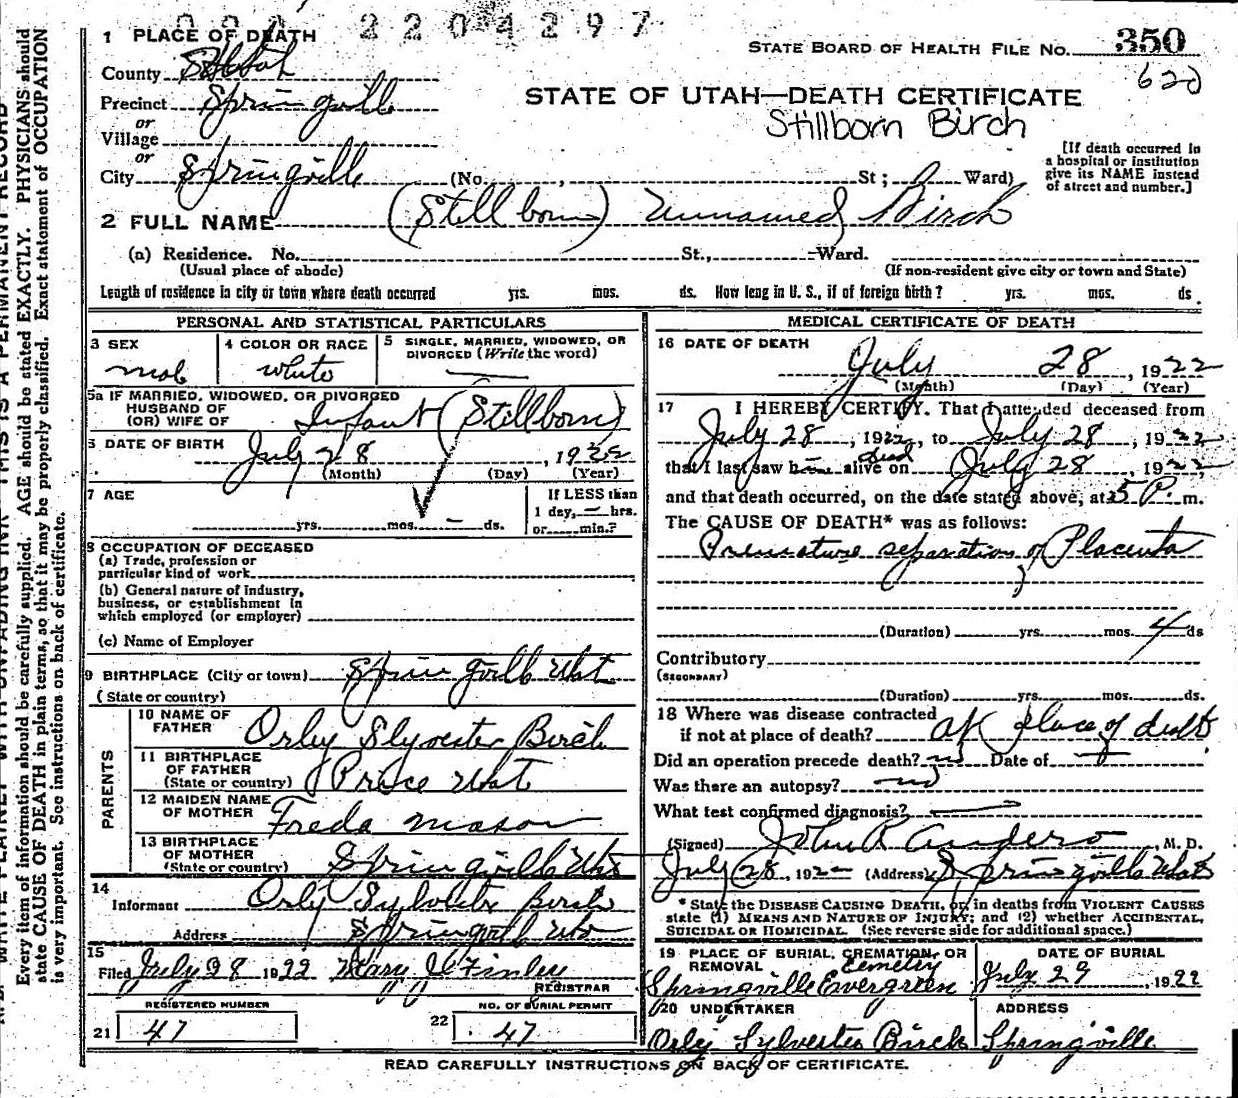 2204297
1 PLACE OF DEATH
STATE BOARD OF HEALTH FILE No. 350
620
County Utah
Precinct Springville
or
Village
or
City Springville (No. , St; Ward)
STATE OF UTAH—DEATH CERTIFICATE
Stillborn Birch
[If death occurred in a hospital or institution give its NAME instead of street and number.]
2 FULL NAME (Stillborn) Unnamed Birch
(a) Residence. No. St., Ward.
(Usual place of abode) (If non-resident give city or town and State)
Length of residence in city or town where death occurred yrs. mos. ds. How long in U. S., if of foreign birth? yrs. mos. ds
PERSONAL AND STATISTICAL PARTICULARS
3 SEX 4 COLOR OR RACE 5 SINGLE, MARRIED, WIDOWED, OR DIVORCED (Write the word)
white
5a IF MARRIED, WIDOWED, OR DIVORCED
HUSBAND OF
(OR) WIFE OF Infant (Stillborn)
6 DATE OF BIRTH July 28, 1922
(Month) (Day) (Year)
7 AGE yrs. mos. — ds.
If LESS than 1 day, — hrs. or min.?
8 OCCUPATION OF DECEASED
(a) Trade, profession or particular kind of work
(b) General nature of industry, business, or establishment in which employed (or employer)
(c) Name of Employer
9 BIRTHPLACE (City or town) Springville Ut
(State or country)
PARENTS
10 NAME OF FATHER Orley Slyvester Birch
11 BIRTHPLACE OF FATHER (State or country) Price Ut
12 MAIDEN NAME OF MOTHER Freda Mason
13 BIRTHPLACE OF MOTHER (State or country) Springville Ut
14 Informant Orley Sylvester Birch
Address Springville
15 Filed July 28 1922 Mary J Finley
REGISTRAR
REGISTERED NUMBER NO. OF BURIAL PERMIT
21 47 22 47
MEDICAL CERTIFICATE OF DEATH
16 DATE OF DEATH
July 28, 1922
(Month) (Day) (Year)
17 I HEREBY CERTIFY. That I attended deceased from
July 28, 1922, to July 28, 1922
that I last saw him alive dead on July 28, 1922
and that death occurred, on the date stated above, at 5 P. m.
The CAUSE OF DEATH* was as follows:
Premature separation of Placenta
(Duration) yrs. mos. 4 ds
Contributory
(SECONDARY)
(Duration) yrs. mos. ds.
18 Where was disease contracted if not at place of death? at place of death
Did an operation precede death? no Date of —
Was there an autopsy? no
What test confirmed diagnosis? —
(Signed) John R Anderson, M. D.
July 28, 1922 (Address) Springville Utah
* State the DISEASE CAUSING DEATH, or, in deaths from VIOLENT CAUSES state (1) MEANS AND NATURE OF INJURY; and (2) whether ACCIDENTAL, SUICIDAL OR HOMICIDAL. (See reverse side for additional space.)
19 PLACE OF BURIAL, CREMATION, OR REMOVAL DATE OF BURIAL
Springville Evergreen Cemetry July 29, 1922
20 UNDERTAKER ADDRESS
Orley Sylvester Birch Springville
READ CAREFULLY INSTRUCTIONS ON BACK OF CERTIFICATE.
Every item of information should be carefully supplied. AGE should be stated EXACTLY. PHYSICIANS should
state CAUSE OF DEATH in plain terms, so that it may be properly classified. Exact statement of OCCUPATION
is very important. See instructions on back of certificate.